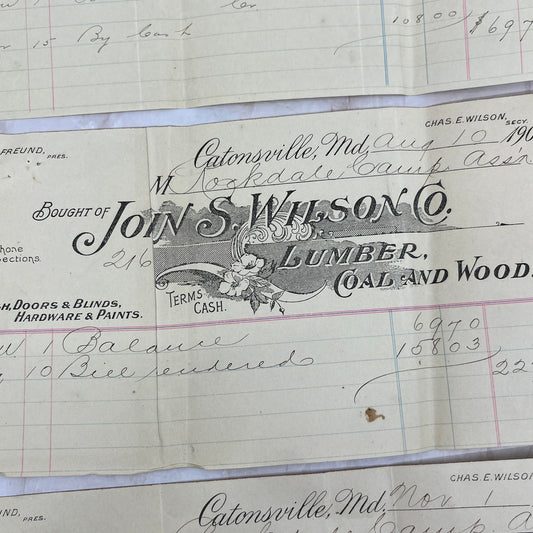 Cr
10800 $697
15 By Cash
CHAS. E. WILSON, SECY.
FREUND, PRES.
Catonsville, Md. Aug 10 190
M Rockdale Camp Ass'n
BOUGHT OF JOHN S. WILSON CO.
LUMBER,
COAL AND WOOD.
216
TERMS CASH.
DOORS & BLINDS,
HARDWARE & PAINTS.
1 Balance 6970
10 Bill rendered 15803
22
CHAS. E. WILSO
PRES.
Catonsville, Md. Nov 1
Camp